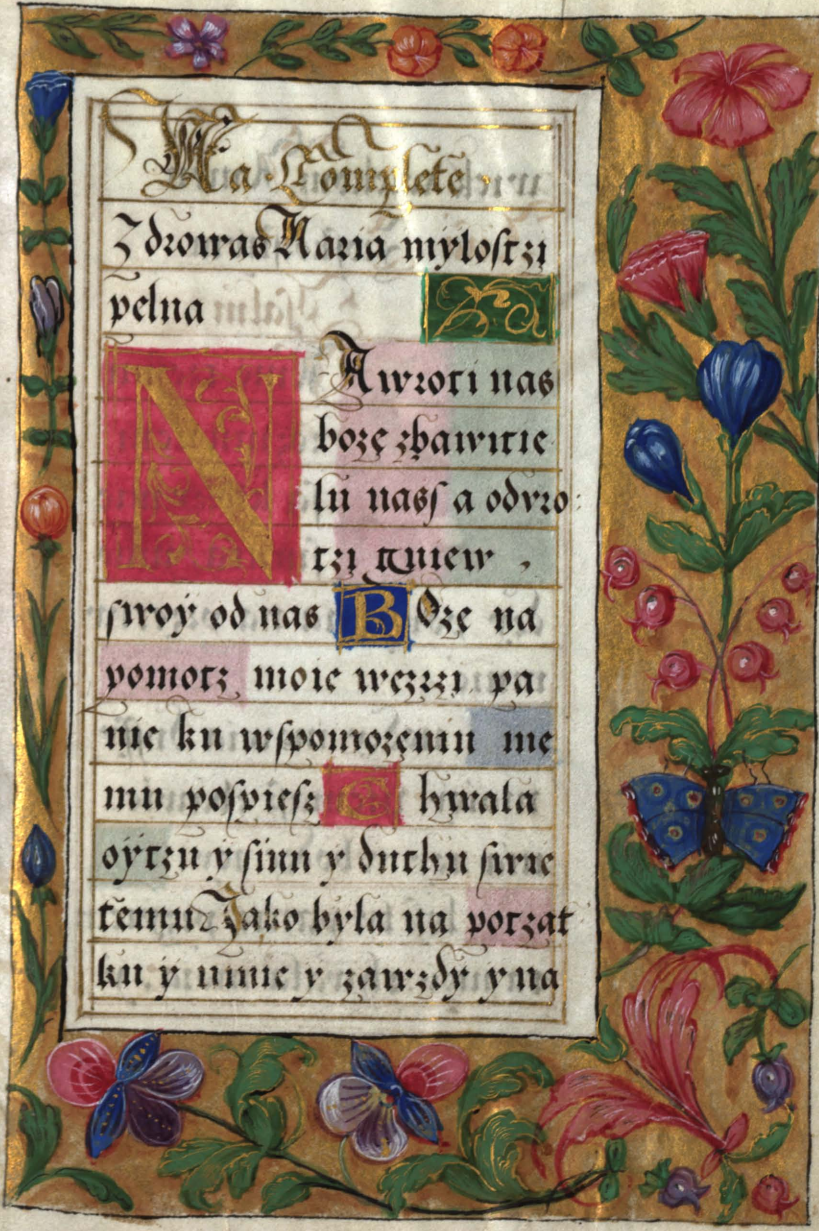 Na Completę
Zdrowas Maria mylosczi
pelna
Nawroci nas
bozę zbawicie
lu nass a odwro
czi gniew
swoy od nas Boze na
pomocz moie wezrzi pa
nie ku wspomozeniu me
mu pospiesz Chwala
oÿczu y sinu y duchu swie
temu Jako byla na poczat
ku ÿ ninie y zawzdy y na